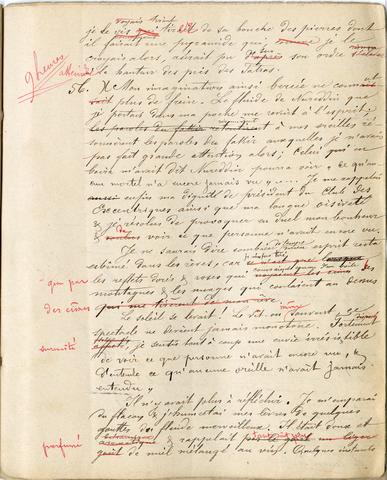 je le voyais tirait de sa bouche des pierres dont
il faisait une pyramide qui, je le
croyais alors, aurait pu
la hauteur des pics des Tatras.
9 heures
attendu
56. Mon imagination ainsi bercée ne connut
plus de frein. Le fluide de Nureddin que
je portais dans ma poche me revint à l'esprit
les paroles du fakir retentirent à mes oreilles et
les paroles du fakir auxquelles je n'avais
pas fait grande attention alors; Celui qui en
boira m'avait dit Nureddin pourra voir ce qu'un
mortel n'a encore jamais vu. Je me rappelai
aussi enfin ma dignité de président du Club des
Excentriques ainsi que ma longue oisiveté
& je résolus de provoquer en duel mon bonheur
& voir ce que personne n'avait encore vu.
Je ne saurais dire combien mon esprit resta
abîmé dans les rêves, car
que par
les reflets dorés & roses qui
des cimes
montagnes & les nuages qui couraient au dessus
qui me tirèrent de mon rêve.
Le soleil se levait! Le vit on souvent, ce
spectacle ne devient jamais monotone. Fortement
je sentis tout à coup une envie irrésistible
de voir ce que personne n'avait encore vu, &
d'entendre ce qu'aucune oreille n'avait jamais
entendu
Il n'y avait plus à réfléchir. Je m'emparai
du flacon & j'humectai mes lèvres de quelques
gouttes du fluide merveilleux. Il était doux et
parfumé
& rappelait par le goût un léger
goût de miel mélangé au vin. Quelques instants